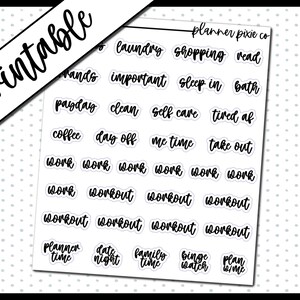 printable
planner pixie co
laundry shopping read
rands important sleep in bath
payday clean self care tired af
coffee day off me time take out
work work work work work work
work workout workout workout
workout workout workout workout
planner time
date night
family time
binge watch
plan w/me